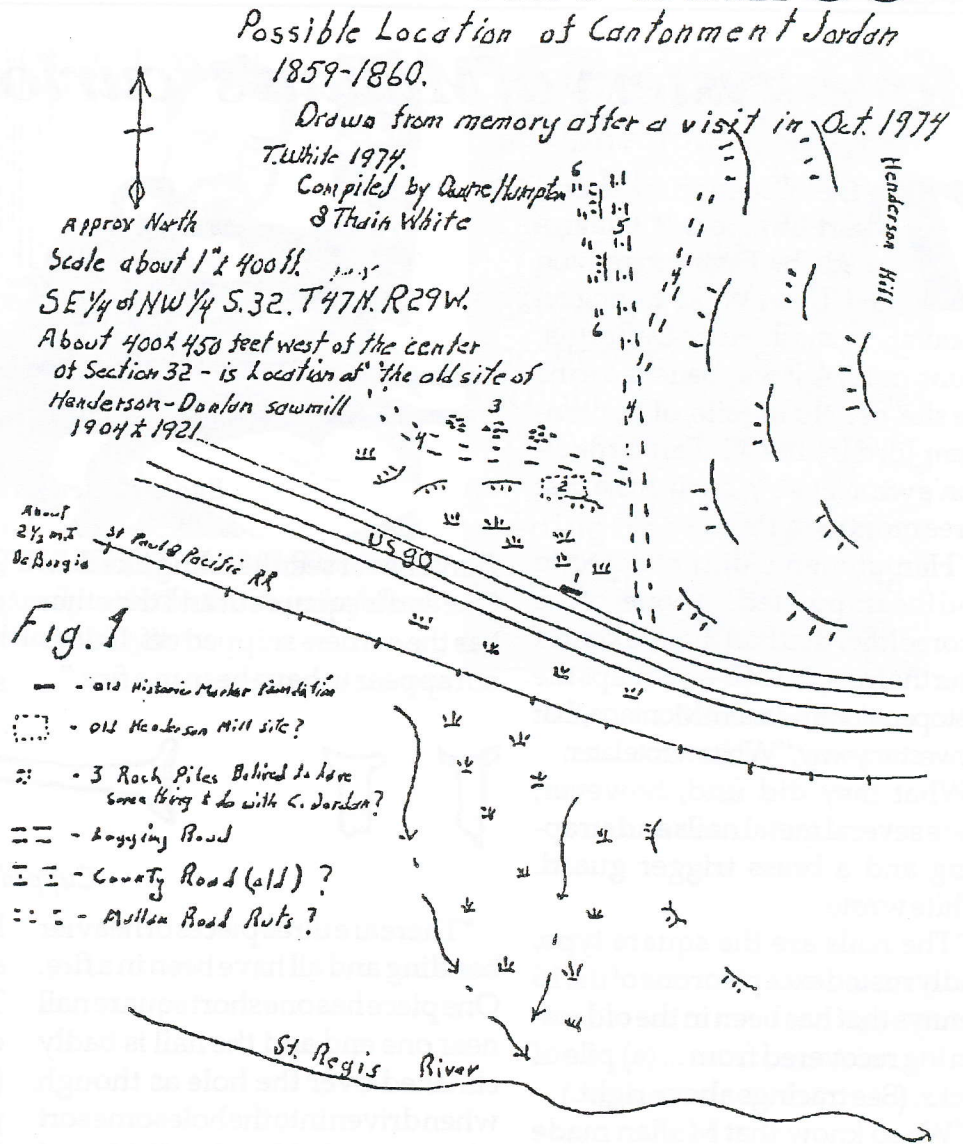 Possible Location of Cantonment Jordan
1859-1860.
Drawn from memory after a visit in Oct. 1974
T. White 1974.
Compiled by Duane Hampton
& Thain White
Approx North
Scale about 1" = 400 ft.
SE 1/4 of NW 1/4 S. 32. T47N. R29W.
About 400 & 450 feet west of the center
of Section 32 - is Location of the old site of
Henderson-Donlan sawmill
1904 & 1921
Henderson Hill
6
5
4
6
4
3
4
2
US 90
About
2 1/2 mi
DeBorgia
St Paul & Pacific RR
Fig. 1
- old Historic Marker Foundation
- old Henderson Mill site?
- 3 Rock Piles Belived to have
something to do with C. Jordan?
- Logging Road
- County Road (old) ?
- Mullan Road Ruts ?
St. Regis River